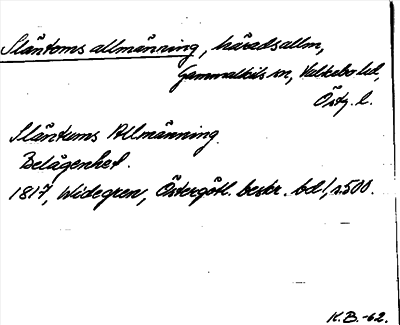 Släntoms allmänning, häradsallm,
Gammalkils sn, Valkebo hd,
Östg. l.
Släntums Allmänning.
Belägenhet.
1817, Widegren, Östergötl. beskr. bd 1, s. 500.
K.B.-62.